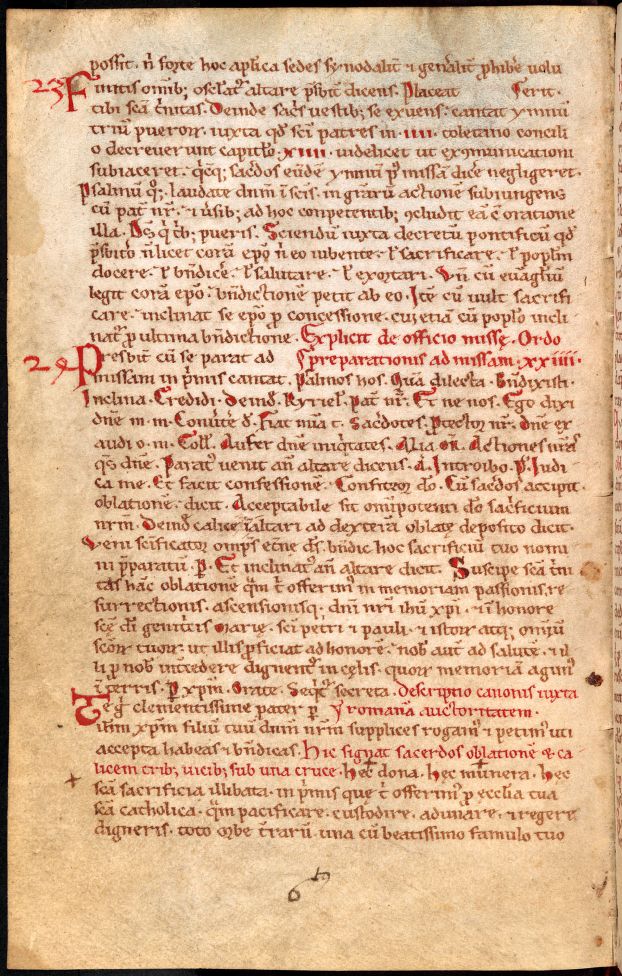 possit. ñ forte hoc aplica sedes synodalit̄ ⁊ gen̄alit̄ ꝓhib̄e uolu
23 Finitis omīb; osclat᷒ altare p̄sbit̄ dicens. Placeat      serit.
tibi sc̄a t̄nitas. Deinde sac̄s uestib; se exuens. cantat ymnū
triū pueroꝝ. iuxta qđ sc̄i patres in .IIII. toletano concili
o decreuerunt capit̄lo .XIIII. uidelicet ut excōmunicationi
subiaceret. q̄cq; sac̄dos eūdē ymnū p᷒ missā dic̄e negligeret.
Psalmū q;. laudate dn̄m ī sc̄is. in gr̄arū actionē subiungens
cū pat̄ nr̄. ⁊ ūsib; ad hoc conpetentib; ꝯcludit eā c̄ oratione
illa. Ds̄ q̄ t̄b; pueris. Sciendū iuxta decretū pontificū qđ
p̄sbit̄o ñ licet corā ep̄o ñ eo iubente. ł sacrificare. ł popl̄m
docere. ł bn̄dic̄e. ł salutare. ł exortari. Vn̄ cū euāgl̄iū
legit corā ep̄o. bn̄dictionē petit ab eo. Itē cū uult sacrifi
care. inclinat se ep̄o ꝓ concessione. cui etiā cū popl̄o incli
nat᷒ ꝓ ultima bn̄dictione. Explicit de officio missę. Ordo
24 Presbit̄ cū se parat ad    preparationis ad missam. XXIIII.
missam in p̄mis cantat. Psalmos hos. Quā dilecta. Bn̄dixisti.
Inclina. Credidi. Deinđ. Kyriel̄. Pat̄ nr̄. Et ne nos. Ego dixi
dn̄e m̄. m̄. Conūte đ. Fiat mīa t̄. Sac̄dotes. Ꝓtector nr̄. dn̄e ex
audi o. m̄. Coll̄. Aufer dn̄e iniq̄tates. Alia or̄. Actiones nr̄as
q̄s dn̄e. Parat᷒ uenit an̄ altare dicens. A. Introibo. P̄. Iudi
ca me. Et facit confessionē. Confiteor dō. Cū sac̄dos accipit
oblationē. dicit. Acceptabile sit omīpotenti dō sac̄ficium
nr̄m. Deinđ calicē ī altari ad dexterā oblatę deposito dicit.
Veni sc̄ificator om̄ps et̄ne ds̄. bn̄dic hoc sacrificiū tuo nomi
ni p̄paratū. P̄. Et inclinat᷒ an̄ altare dicit. Suscipe sc̄a t̄ni
tas hāc oblationē q̄m t̄ offerim᷒ in memoriam passionis. re
surrectionis. ascensionisq; dn̄i nr̄i ih̄u xp̄i. ⁊ ī honorē
sc̄ę dī genit̄cis Marię. sc̄i petri ⁊ pauli. ⁊ istoꝝ atq; omniū
sc̄oꝝ tuoꝝ. ut illis ꝓficiat ad honorē. nob̄ aut̄ ad salutē. ⁊ il
li ꝓ nob̄ int̄cedere dignent᷒ in cęlis. quoꝝ memoriā agim᷒
ī terris. P̄ xp̄m. Orate. Seq̄t᷒ secreta. Descriptio canonis iuxta
Te g̊ clementissime pater ꝑ     romanā auctoritatem.
ih̄m xp̄m filiū tuū dn̄m nr̄m supplices rogam᷒ ⁊ petim᷒ uti
accepta habeas ⁊ bn̄dicas. Hic signat sacerdos oblationē & ca
licem trib; uicib; sub una cruce. hęc dona. hęc munera. hęc
sc̄a sacrificia illibata. in p̄mis quę t̄ offerim᷒ ꝓ ecclīa tua
sc̄a catholica. q̄m pacificare. custodire. adunare. ⁊ regere
digneris. toto orbe t̄rarū. una cū beatissimo famulo tuo